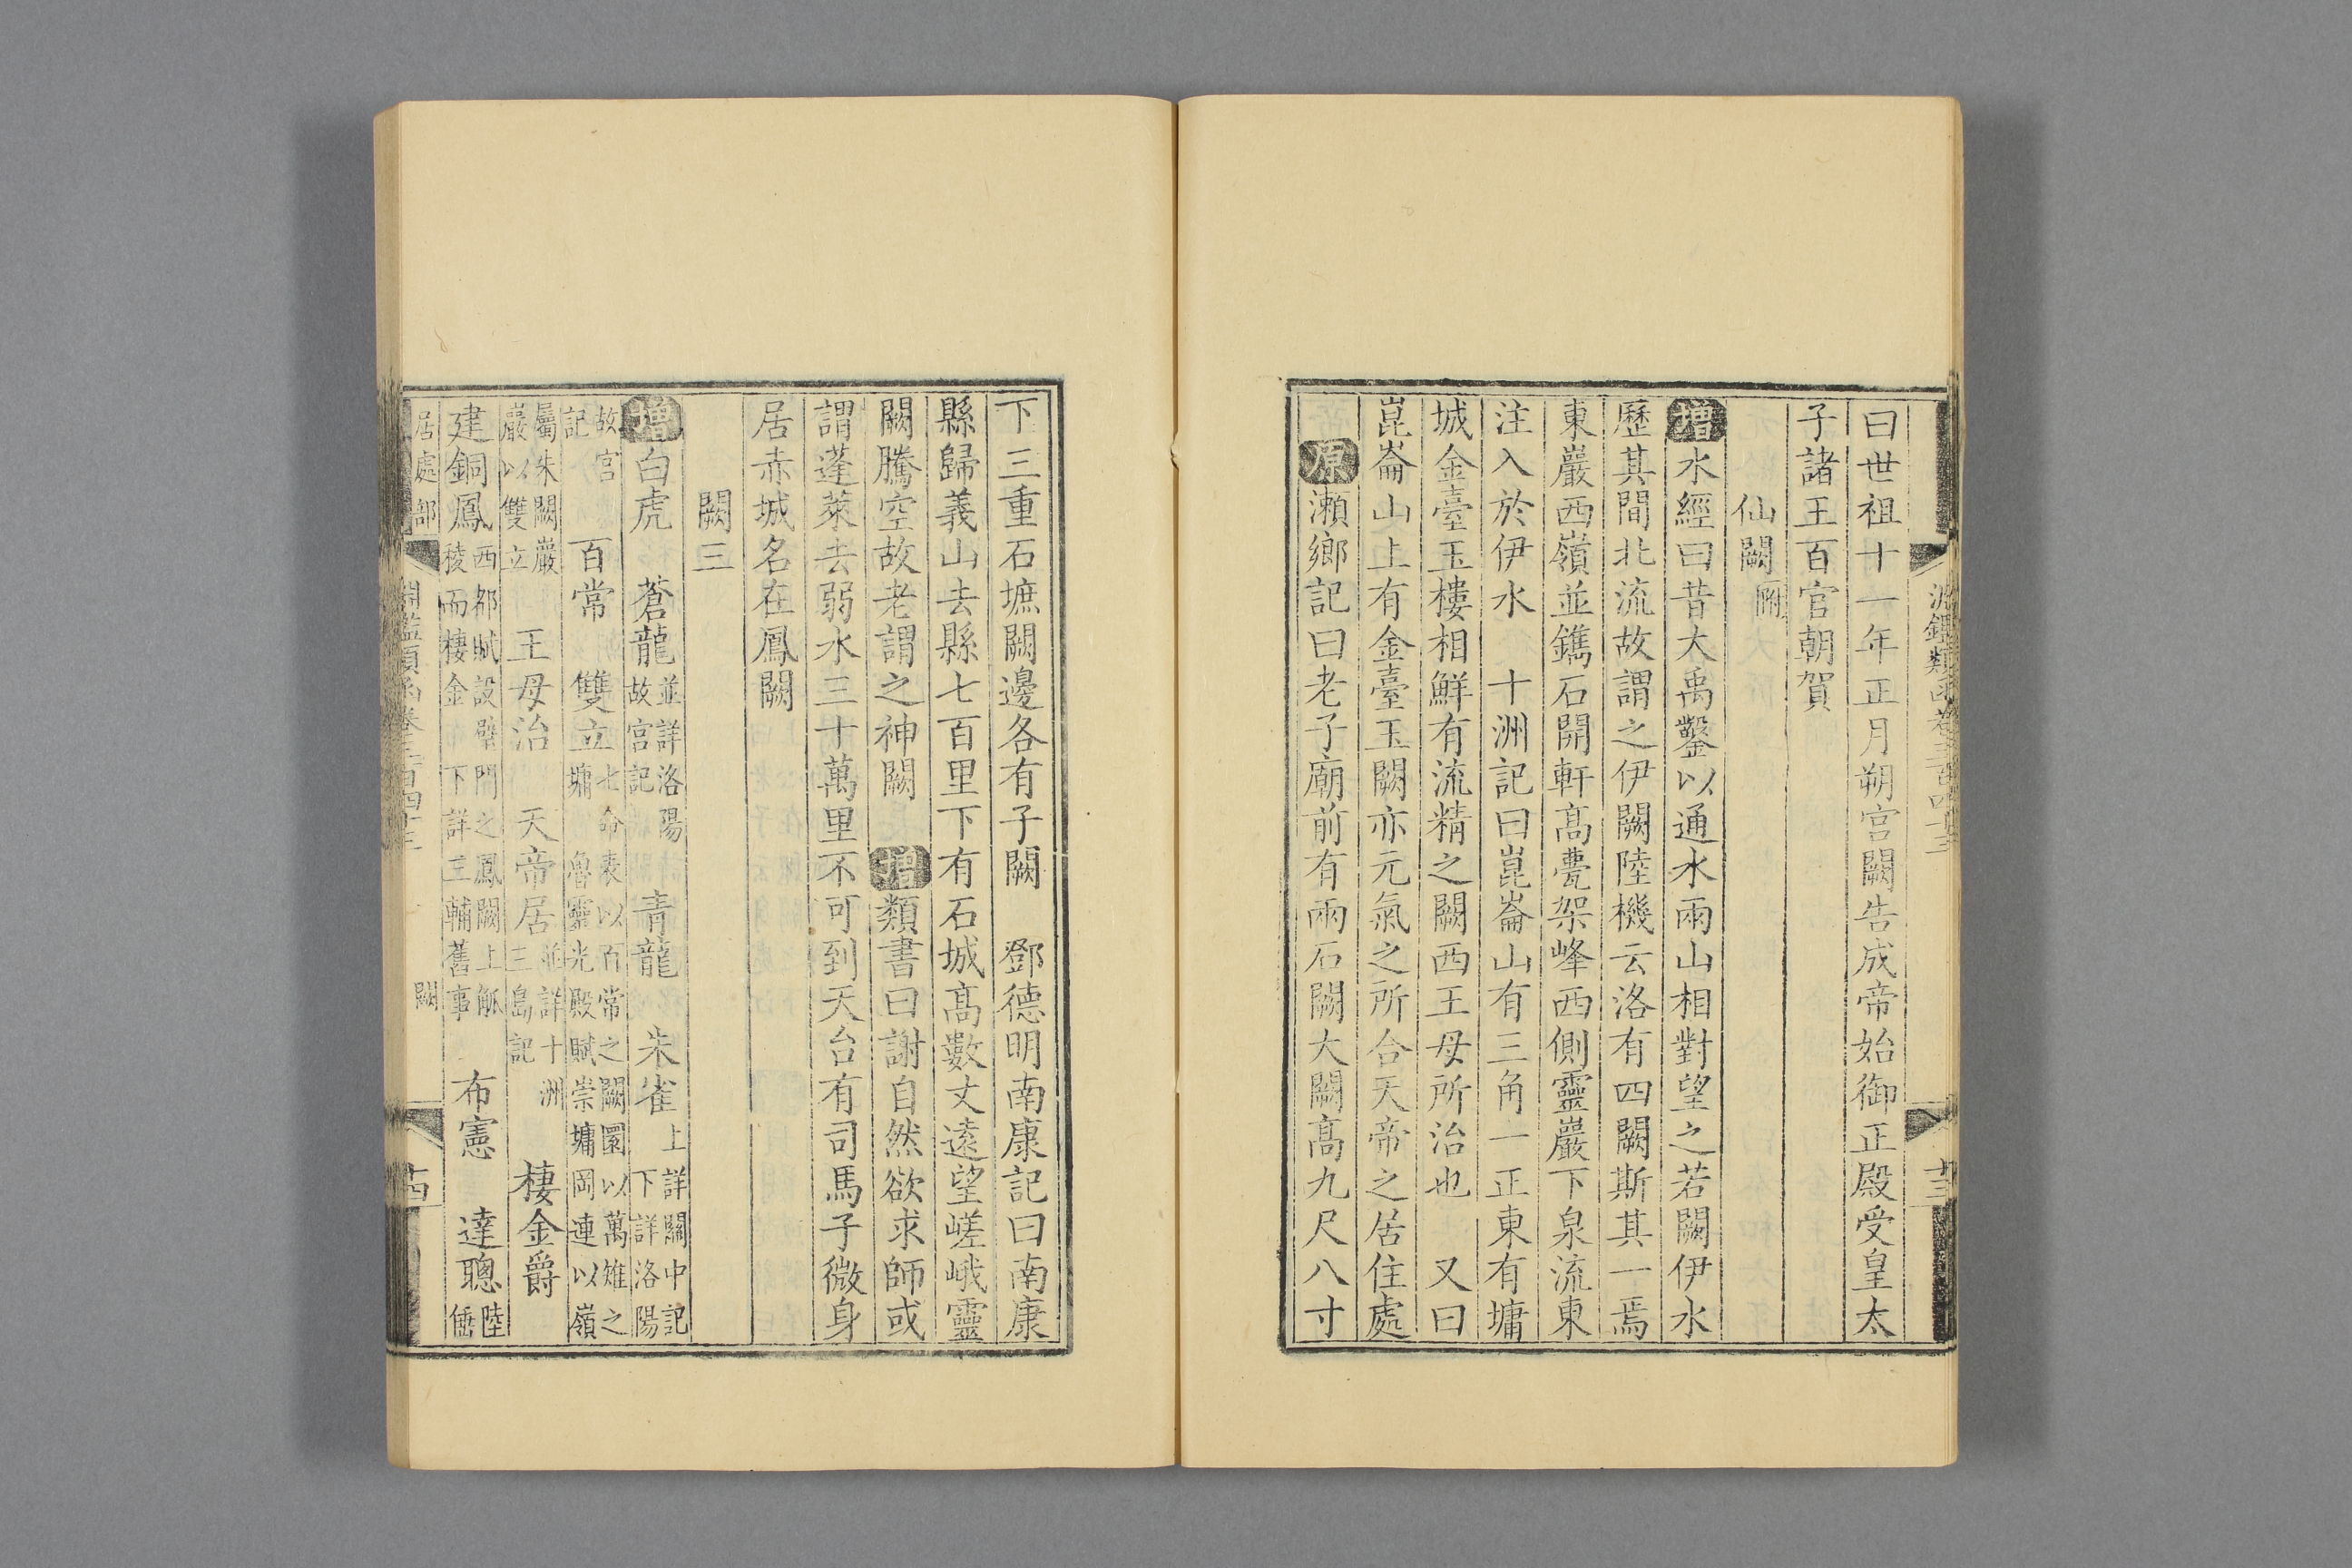 曰世祖十一年正月朔宮闕告成帝始御正殿受皇太
子諸王百官朝賀
仙闕
增水經曰昔大禹鑿以通水兩山相對望之若闕伊水
歷其間北流故謂之伊闕陸機云洛有四闕斯其一焉
東巖西嶺並鐫石開軒高甍架峰西側靈巖下泉流東
注入於伊水　十洲記曰崑崙山有三角一正東有墉
城金臺玉樓相鮮有流精之闕西王母所治也　又曰
崑崙山上有金臺玉闕亦元氣之所合天帝之居住處
原瀨鄉記曰老子廟前有兩石闕大闕高九尺八寸
下三重石墌闕邊各有子闕　鄧德明南康記曰南康
縣歸義山去縣七百里下有石城高數丈遠望嵯峨靈
闕騰空故老謂之神闕　增類書曰謝自然欲求師或
謂蓬萊去弱水三十萬里不可到天台有司馬子微身
居赤城名在鳳闕
闕三
增白虎　蒼龍並詳洛陽故宮記　青龍　朱雀上詳關中記下詳洛陽
故宮記　百常　雙立七命表以百常之闕圜以萬雉之墉魯靈光殿賦崇墉岡連以嶺
屬朱闕巖巖以雙立　王母治　天帝居並詳十洲三島記　棲金爵
建銅鳳西都賦設璧門之鳳闕上觚稜而棲金下詳三輔舊事　布憲　達聰陸倕
居處部　淵鑑類函卷三百四十三　闕　十四